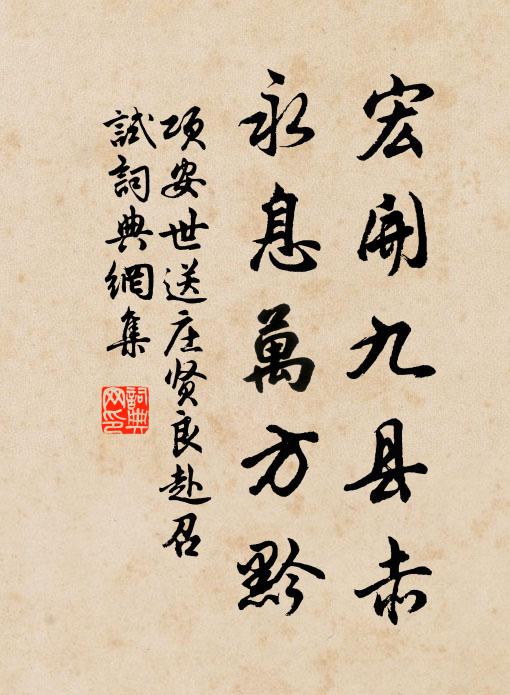 宏開九县赤
永息萬方黔
项安世送庄贤良赴召
試詞典網集
詞典
网印